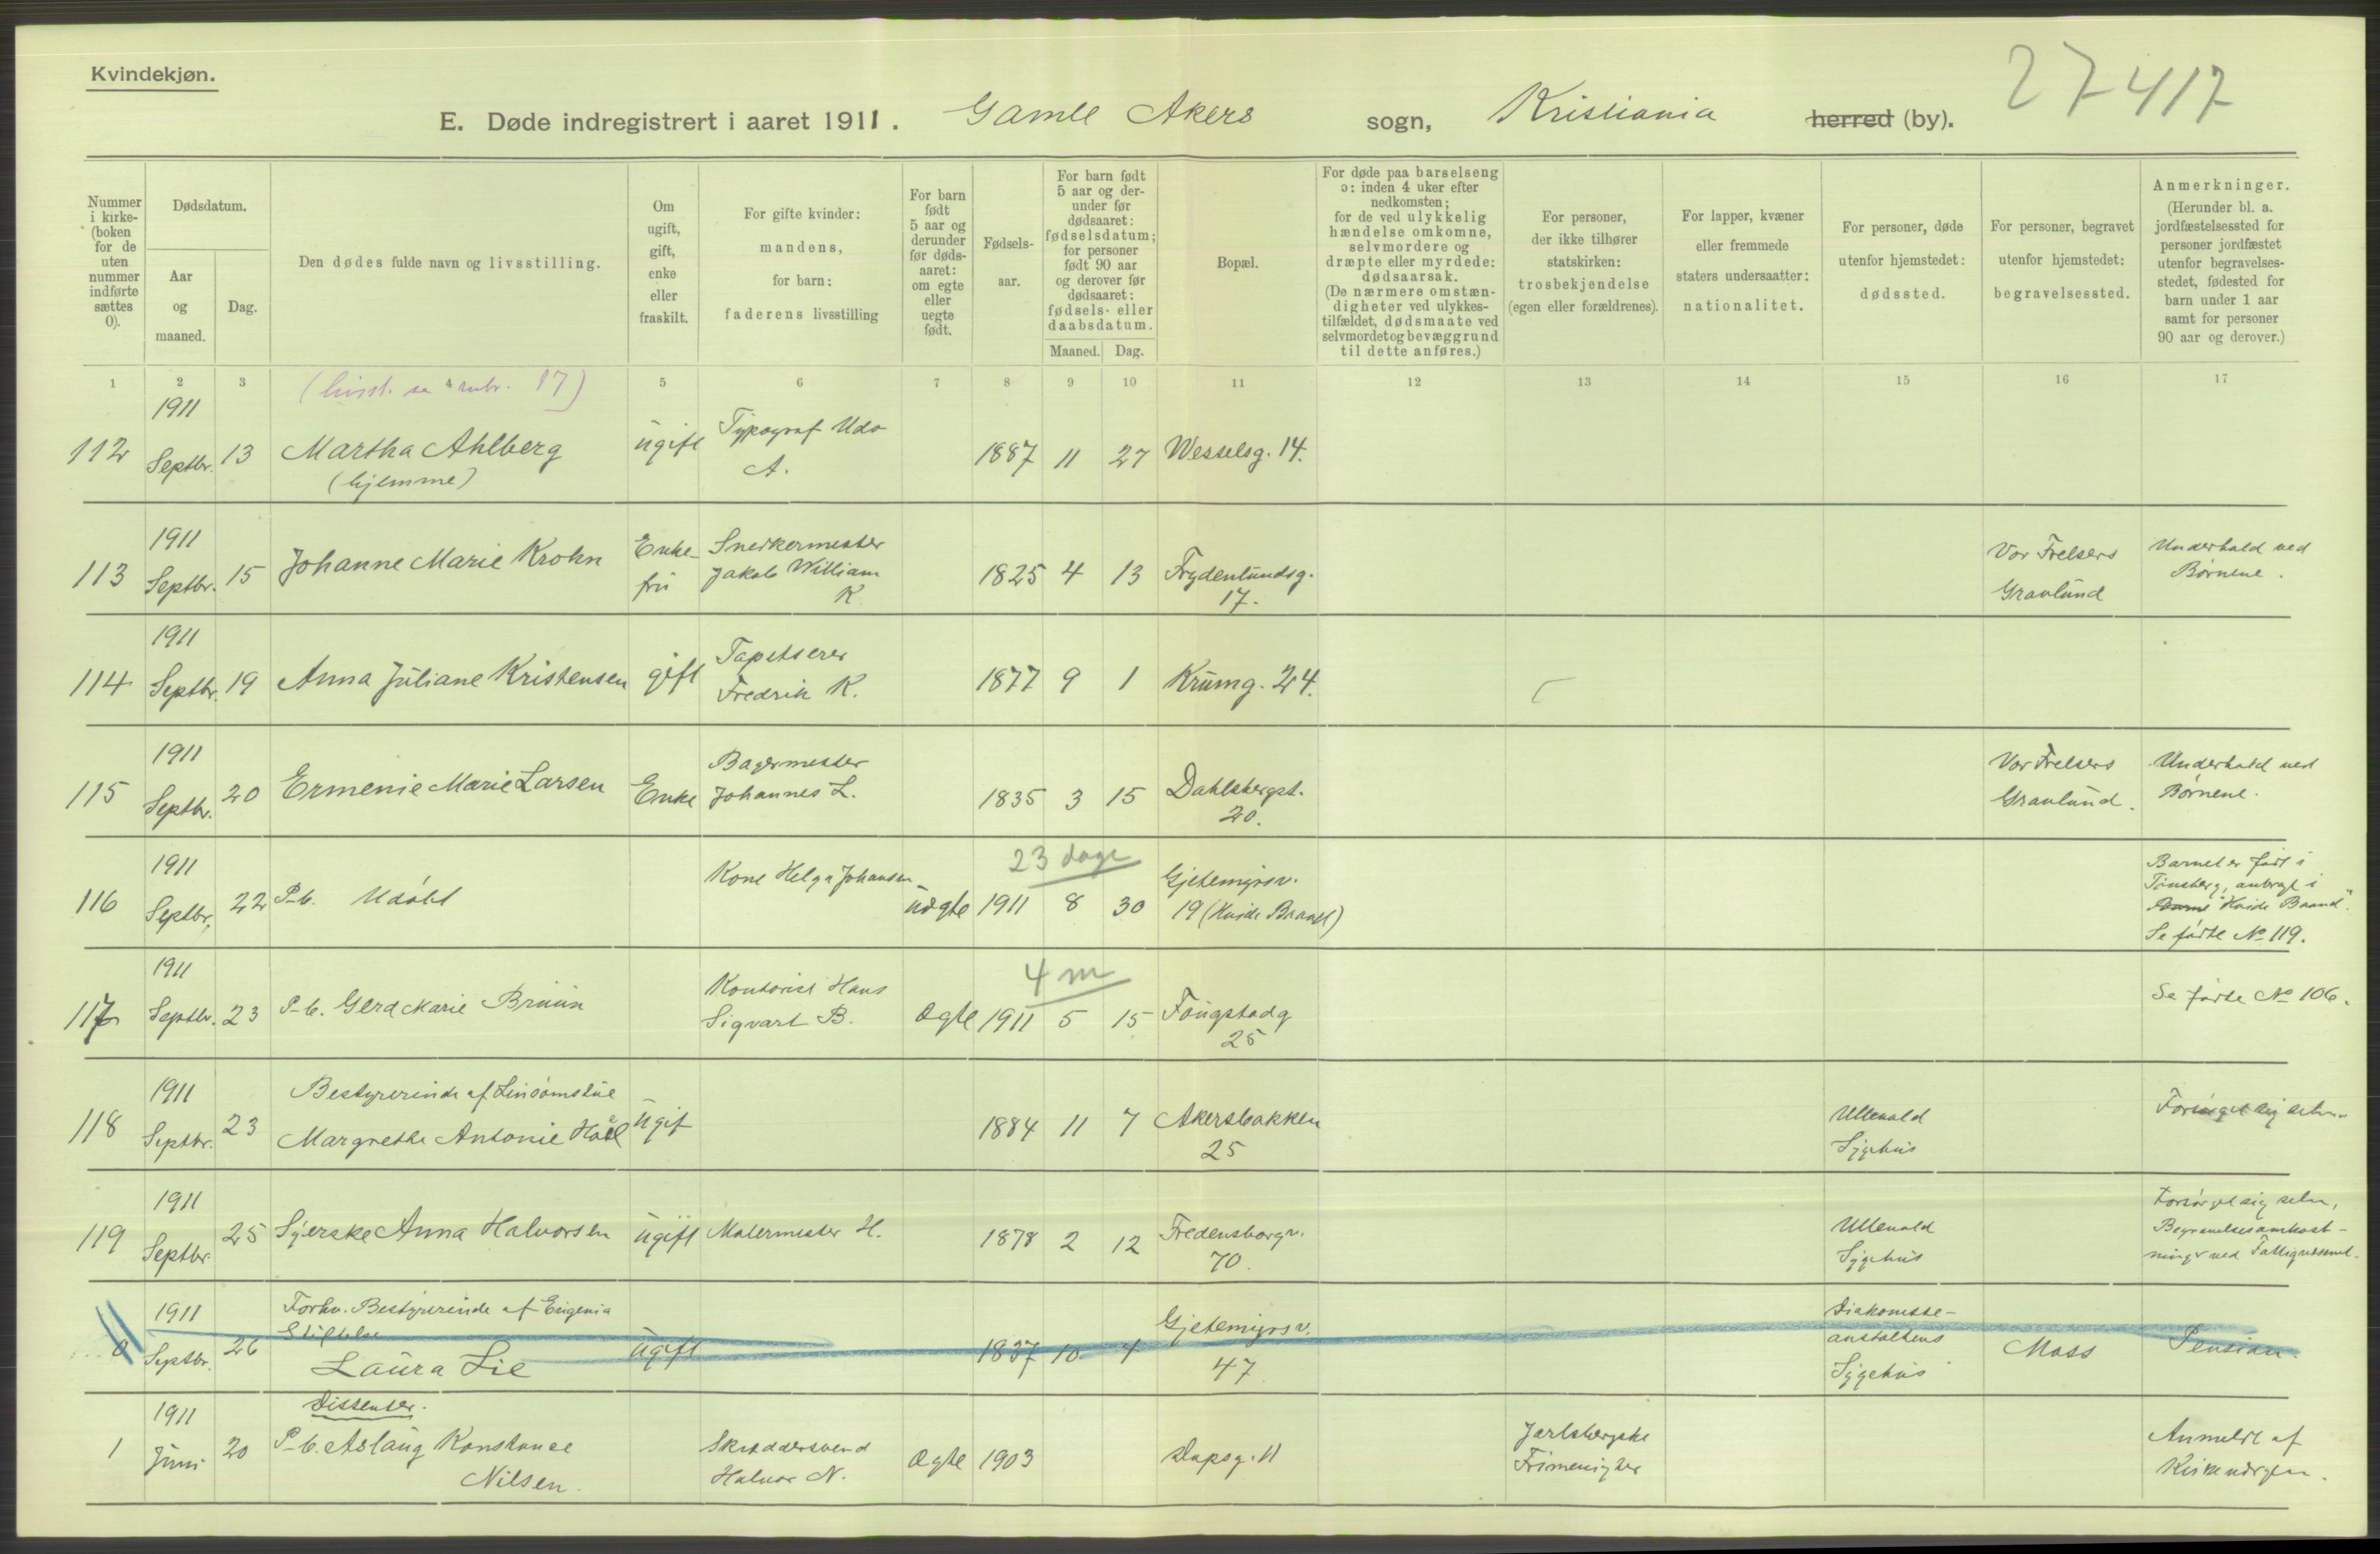 Kvindekjøn.
27417
E. Døde indregistrert i aaret 1911. Gamle Akers sogn, Kristiania herred (by).
Nummer i kirke-(boken for de uten nummer indførte sættes 0).
Dødsdatum.
Aar og maaned.
Dag.
Den dødes fulde navn og livsstilling.
Om ugift, gift, enke eller fraskilt.
For gifte kvinder: mandens, for barn: faderens livsstilling
For barn født 5 aar og derunder før døds-aaret: om egte eller uegte født.
Fødsels-aar.
For barn født 5 aar og der-under før dødsaaret: fødselsdatum; for personer født 90 aar og derover før dødsaaret: fødsels- eller daabsdatum.
Maaned. Dag.
Bopæl.
For døde paa barselseng ɔ: inden 4 uker efter nedkomsten; for de ved ulykkelig hændelse omkomne, selvmordere og dræpte eller myrdede: dødsaarsak. (De nærmere omstæn-digheter ved ulykkes-tilfældet, dødsmaate ved selvmordet og bevæggrund til dette anføres.)
For personer, der ikke tilhører statskirken: trosbekjendelse (egen eller forældrenes).
For lapper, kvæner eller fremmede staters undersaatter: nationalitet.
For personer, døde utenfor hjemstedet: dødssted.
For personer, begravet utenfor hjemstedet: begravelsessted.
Anmerkninger. (Herunder bl. a. jordfæstelsessted for personer jordfæstet utenfor begravelses-stedet, fødested for barn under 1 aar samt for personer 90 aar og derover.)
1 2 3 4 5 6 7 8 9 10 11 12 13 14 15 16 17
(livsst. se rubr. 17)
112 1911 Septbr. 13 Martha Ahlberg (hjemme) ugift Typograf Udo A. 1887 11 27 Wesselsg. 14.
113 1911 Septbr. 15 Johanne Marie Krohn Enke-fru Snedkermester Jakob William K. 1825 4 13 Frydenlundsg. 17. Vor Frelsers Gravlund Underhold ved Børnene.
114 1911 Septbr. 19 Anna Juliane Kristensen gift Tapetserer Fredrik K. 1877 9 1 Krumg. 24.
115 1911 Septbr. 20 Ermenie Marie Larsen Enke Bagermester Johannes L. 1835 3 15 Dahlsbergst. 20. Vor Frelsers Gravlund. Underhold ved Børnene.
116 1911 Septbr. 22 P-b. Udøbt Kone Helga Johansen uægte 23 dage 1911 8 30 Gjetemyrsv. 19 (Hvide Baand) Barnet er født i Tønsberg, anbragt i "Hvide Baand". Se fødte No 119.
117 1911 Septbr. 23 P-b. Gerd Marie Bruun Kontorist Hans Sigvart B. Ægte 4 m 1911 5 15 25 Se fødte No 106.
118 1911 Septbr. 23 Bestyrerinde af Margrethe Antonie ugift 1884 11 7 Akersbakken 25 Ullevaald Sygehus Forsørget sig selv.
119 1911 Septbr. 25 Syerske Anna Halvorsen ugift Malermester H. 1878 2 12 Fredensborgv. 70. Ullevaald Sygehus Forsørget sig selv, Begravelsesomkost-ninger ved Fattigvæsenet.
0 1911 Septbr. 26 Forhv. Bestyrerinde af Eugenia Stiftelse Laura Lie ugift 1837 10 4 Gjetemyrsv. 47 Diakonisse-anstaltens Sygehus Moss Pension.
1 1911 Juni 20 Dissenter. P-b. Aslaug Konstanse Nilsen. Skræddersvend Halvor N. Ægte 1903 Dapsg. 11 Jarlsbergske Frimenigter Anmeldt af Kirkeværgen.